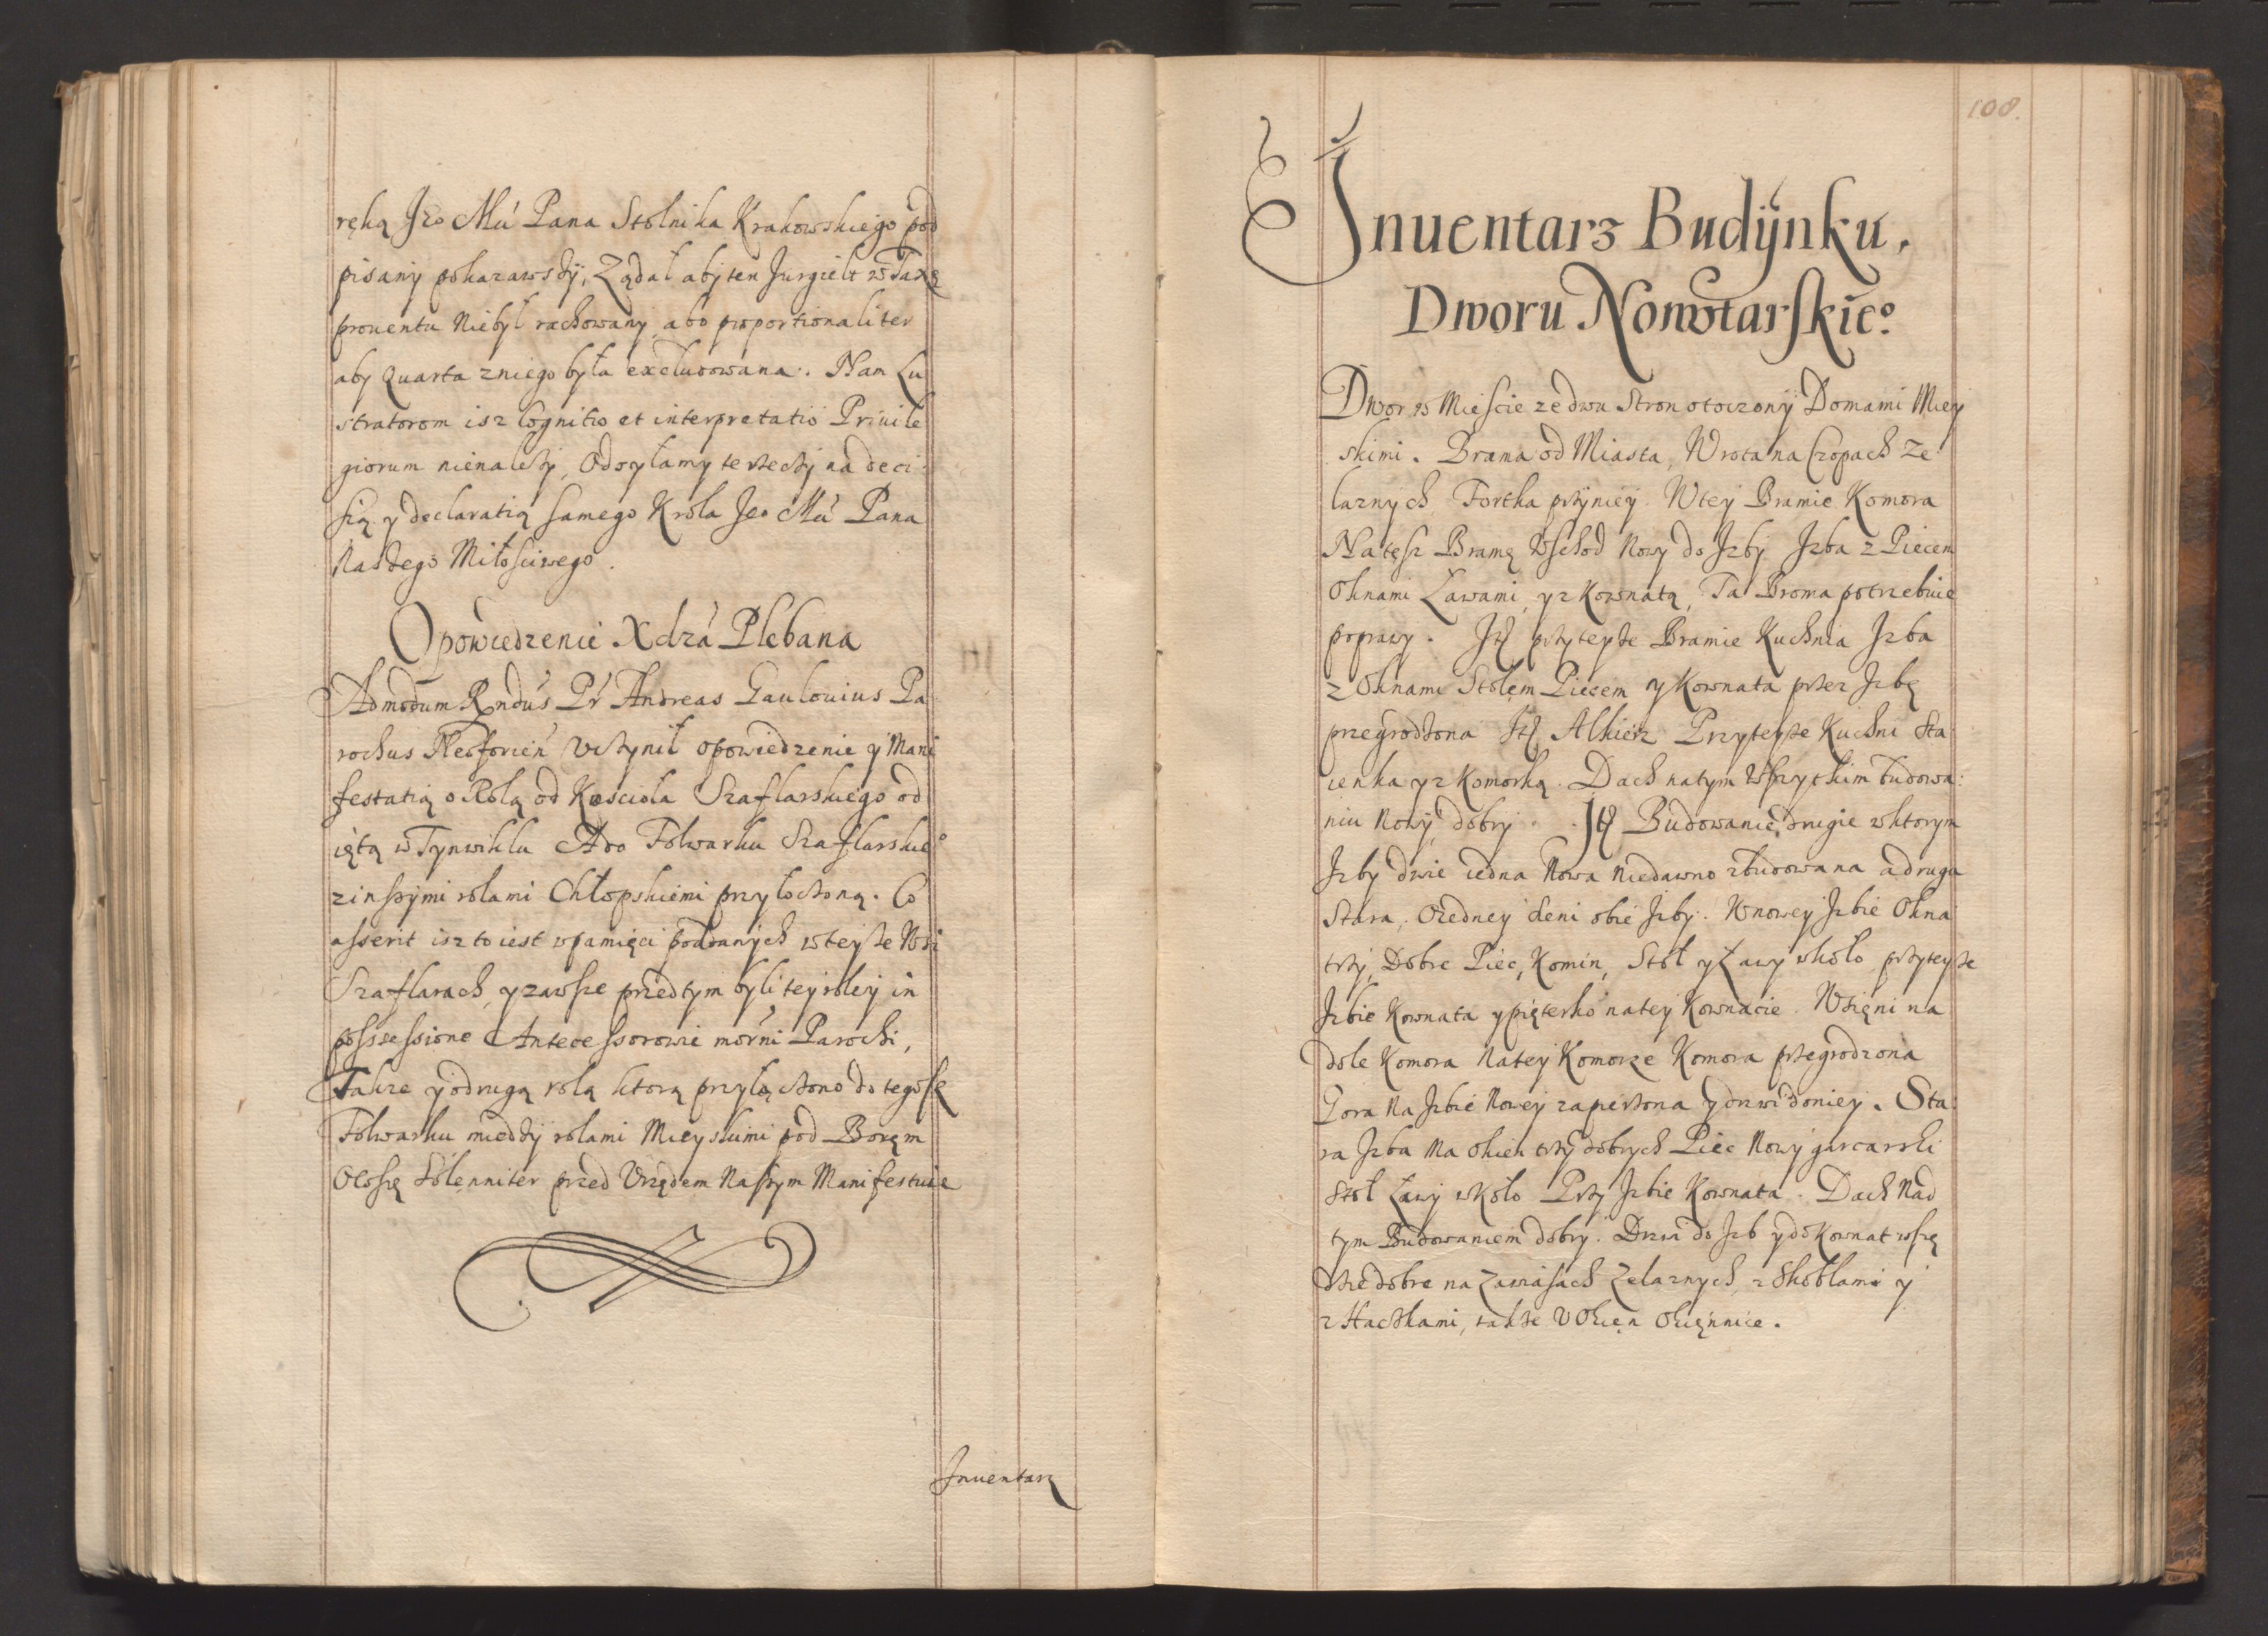 ręką Jeo Mći Pana Stolnika Krakowskiego pod
pisany pokazawszy, Ządał aby ten Jurgielt w Taxę
prouentu Niebył rachowany, abo proportionaliter
aby Quarta zniego była excludowana. Nam Lu
stratorom isz Cognitio et interpretatio Priuile
giorum nienależy, Odsyłamy te rzeczy na deci
sią y declaratią samego Krola Jeo Mći Pana
Naszego Miłościwego.
Opowiedzenie Xdza Plebana
Admodum Rndus Pr Andreas Gaulouius Pa
rochus Neoforień Vczynił opowiedzenie y Mani
festatią o Rolą od Kosciola Szaflarskiego od
iętą w Tynwiklu A do Folwarku Szaflarskieo
z inszymi rolami Chłopskiemi przyłoczoną. Co
asserit isz to iest w pamięci poddanych w teysze Wsi
Szaflarach, y zawsze przedtym byli tey roley in
possessione Antecessorowie morni Parochi,
Takze y o drugą rolą ktorą przyłączono do tegosz
Folwarku miedzy rolami Mieyskimi pod Borem
Oco się Solenniter przed Vrzędem Naszym Manifestuie
Inuentarz
108.
Inuentarz Budynku,
Dworu Nowotarskieo
Dwor w Mieście ze dwu Stron otoczony Domami Miey
skimi. Brama od Miasta, Wrota na Czopach Ze
laznych Fortka przyniey. Wtey Bramie Komora
Na tęsz Bramę Wschod Nowy do Izby Izba z Piecem
Oknami Ławami, y z Kownatą, Ta Broma potrzebuie
poprawy. Itẽ przyteysze Bramie Kuchnia Izba
z Oknami Stołem Piecem y Kownata przez Izbę
przegrodzona Itẽ Alkierz Przyteysze Kuchni Sta
ienka y z Komorką. Dach natym Wszytkim budowa:
niu Nowy dobry. Itẽ Budowanie drugie w ktorym
Izby dwie iedna Nowa Niedawno zbudowana a druga
Stara, Oiedney Sieni obie Izby. Wnowey Izbie Okna
trzy, Dobre Piec, Komin, Stoł y Ławy wkoło przyteysze
Izbie Kownata y pięterko natey Kownacie. Wsięni na
dole Komora Natey Komorze Komora przegrodzona
Gora Na Izbie Nowey zapierzona y drzwi doniey. Sta
ra Izba Ma okien trzy dobrych Piec Nowy garcarski
Stoł Ławy wkoło Przy Izbie Kownata. Dach Nad
tym Budowaniem dobry. Drzwi do Izb y do Kownat wszę
dzie dobre na Zawiasach Zelaznych, z Skoblami y
z Haczkami, także V Okien Okięnnice.